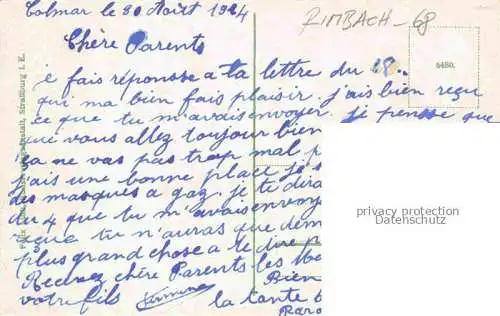 Colmar le 30 Août 1924
RIMBACH - 68
Chère Parents
6480.
je fais réponsse a ta lettre du 18.
qui ma bien fais plaisir. j'ais bien reçu
ce que tu m'avais envoyer. je pensse que
que vous allez toujour bien
ça ne vas pas trop mal p
j'ais une bonne place je s
des masques a gaz. je te dira
du 4 que tu m'avais envoye
reçue tu n'auras que dem
plus grand chose a te dire
Recevez chère Parents les
Bien
votre fils
la tante
privacy protection
Datenschutz
Straßburg i. E.